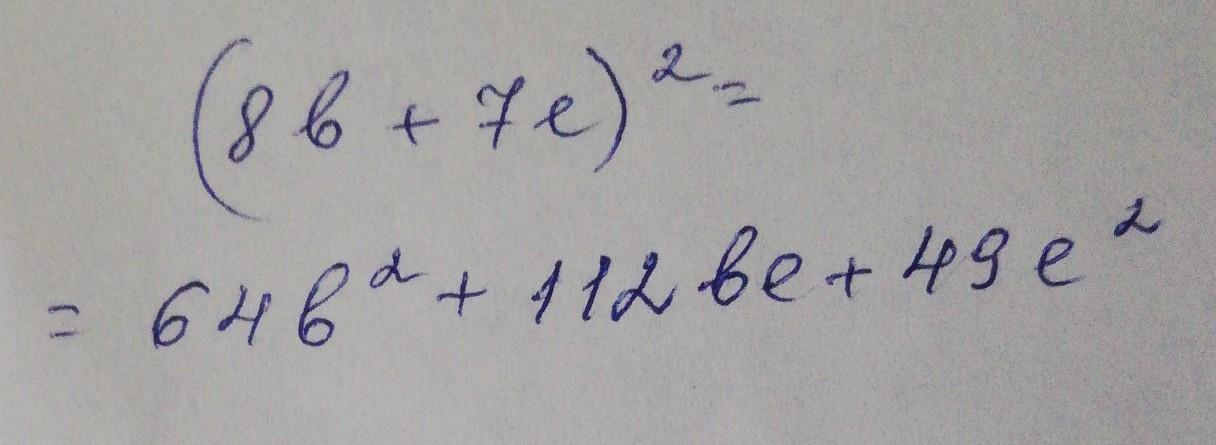 (8b + 7e)² =
= 64b² + 112be + 49e²